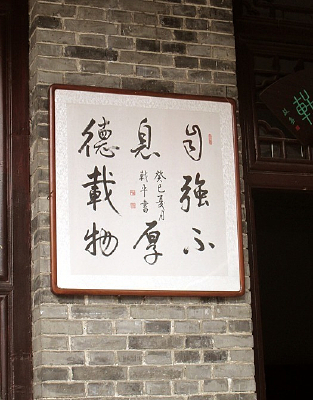 自強不
息厚
德載物
癸巳夏月
平書
軒